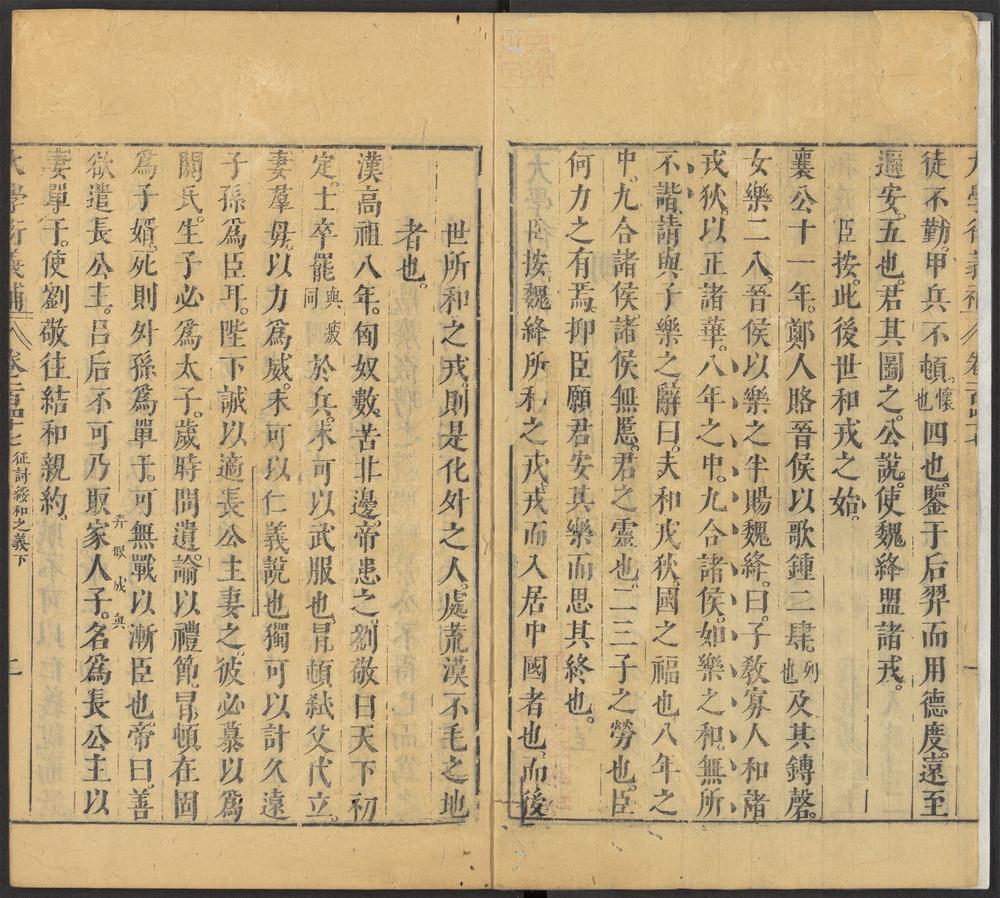 大學衍義補 卷一百四十七
徒不勤甲兵不頓。壞也四也鑒于后羿而用德度。遠至
邇安。五也。君其圖之。公說。使魏絳盟諸戎。
臣按。此後世和戎之始。
襄公十一年。鄭人賂晉侯以歌鍾二肆。列也及其鏄磬。
女樂二八。晉侯以樂之半賜魏絳。曰。子教寡人和諸
戎狄。以正諸華。八年之中。九合諸侯。如樂之和。無所
不諧。請與子樂之。辭曰。夫和戎狄。國之福也。八年之
中。九合諸侯。諸侯無慝。君之靈也。二三子之勞也。臣
何力之有焉。抑臣願君安其樂而思其終也。
臣按。魏絳所和之戎。戎而入居中國者也。而後
世所和之戎。則是化外之人。處荒漠不毛之地
者也。
漢高祖八年。匈奴數苦北邊。帝患之。劉敬曰天下初
定。士卒罷與疲同於兵。未可以武服也。冒頓弒父代立。
妻羣母。以力爲威。未可以仁義說也獨可以計久遠
子孫爲臣耳。陛下誠以適長公主妻之。彼必慕以爲
閼氏。生子必爲太子。歲時問遺。諭以禮節。冒頓。在固
爲子婿。死則外孫爲單于。可無戰以漸臣也。帝曰。善
弄假成真
欲遣長公主。呂后不可乃取家人子。名爲長公主以
妻單于。使劉敬往結和親約。
大學衍義補 卷一百四十七 征討綏和之義下 二